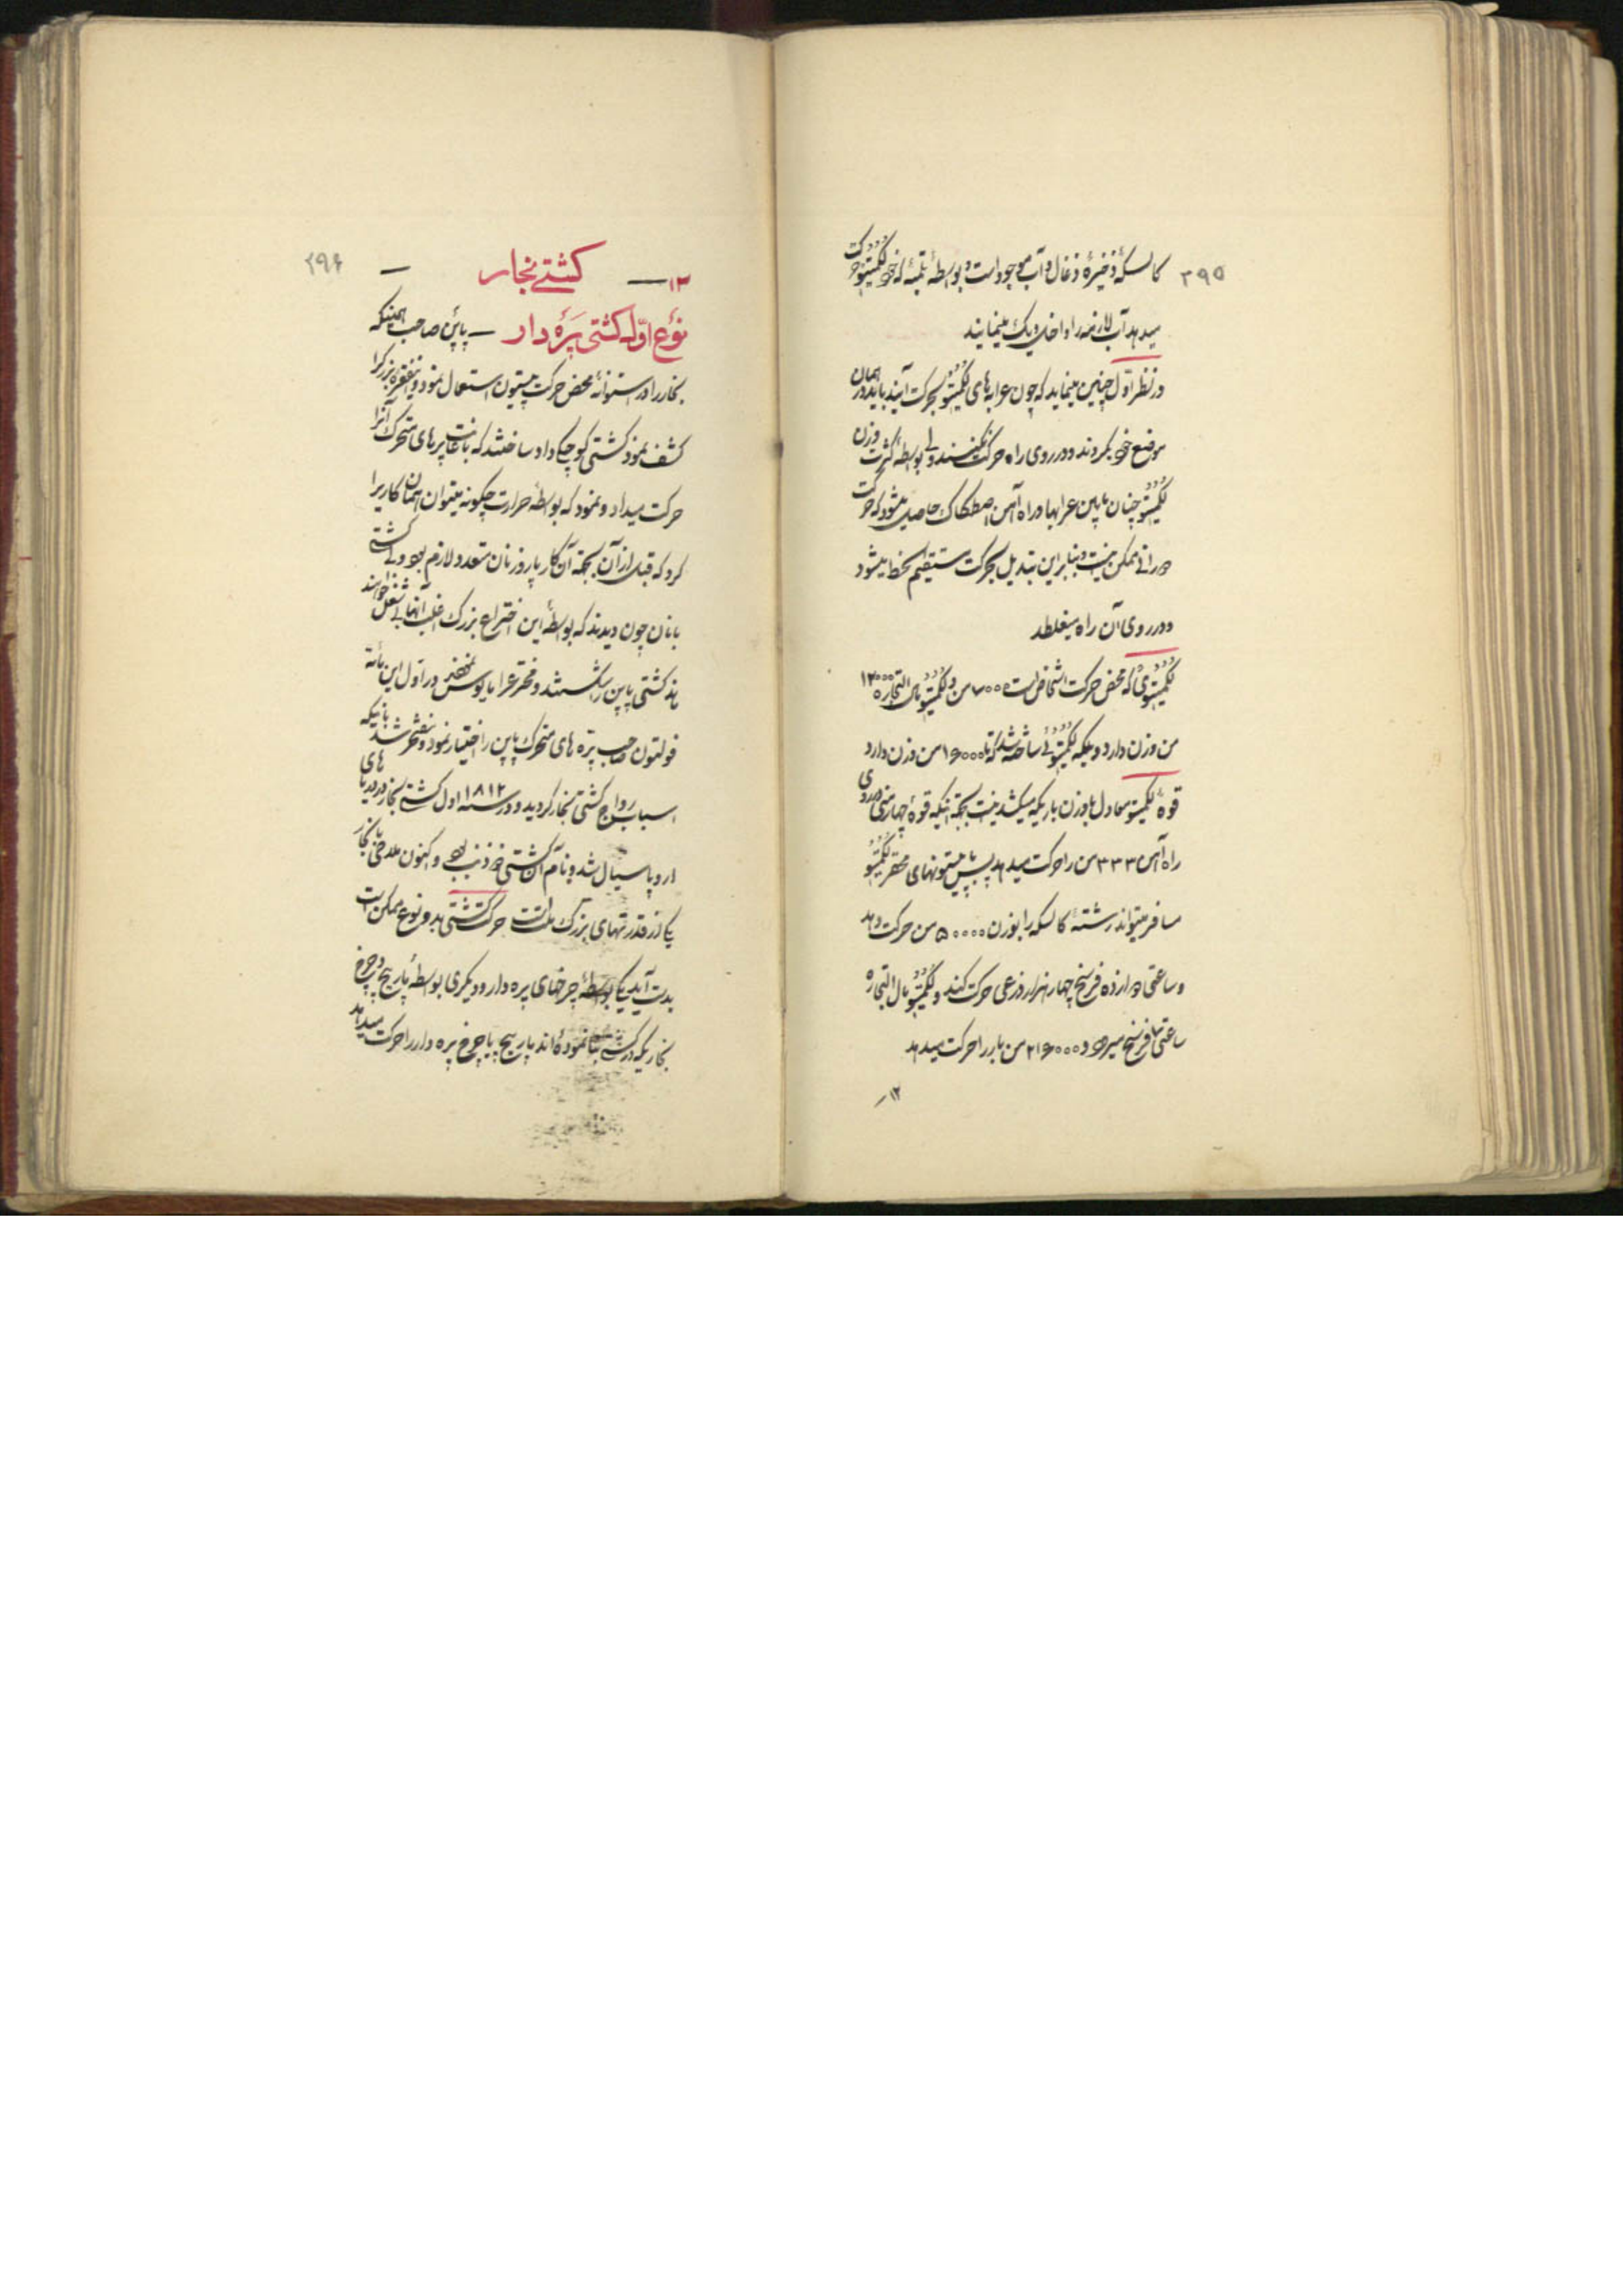 ۲۹۵
کالسکهٔ ذخیرهٔ ذغال و آب موجود است و بواسطهٔ تلمبهٔ که خود لکمتیو حرکت
میدهد آب لازمه را داخل دیک مینمایند
در نظر اوّل چنین مینماید که چون عرابه‌های لکمتیو بحرکت آیند باید در همان
موضع خود بگردند و در روی راه حرکت نکنند ولی بواسطهٔ کثرت وزن
لکمتیو چنان مابین عرابها و راه آهن اصطکاک حاصل میشود که حرکت
دورانی ممکن نیست و بنابراین تبدیل بحرکت مستقیم الخط میشود
و در روی آن راه میغلطد
لکمتیوی که محض حرکت اشخاص است ۷۰۰۰ من و لکمتیو مال التجاره ۱۲۰۰۰
من وزن دارد و بلکه لکمتیوئی ساخته شد که تا ۱۶۰۰۰ من وزن دارد
قوهٔ لکمتیو معادل با وزن باریکه میکشد نیست بجهة اینکه قوهٔ چهار منی در روی
راه آهن ۳۳۳ من را حرکت میدهد پس پیستونهای محقر لکمتیو
مسافر میتواند رشتهٔ کالسکه را بوزن ۵۰۰۰۰ من حرکت دهد
و ساعتی دوازده فرسخ چهار هزار ذرعی حرکت کند و لکمتیو مال التجاره
ساعتی فرسخ میرود و ۲۱۶۰۰۰ من بار را حرکت میدهد
۱۲
۲۹۶
۱۳ — کشتی بخار —
نوع اوّل کشتی پره دار — پاپن صاحب همینکه
بخار را در استوانهٔ محض حرکت پیستون استعمال نمود و اینفقره بزرک را
کشف نمود کشتی کوچکی داد ساختند که باعانت پره‌های متحرک آنرا
حرکت میداد و نمود که بواسطهٔ حرارت چکونه میتوان همان کاریرا
کرد که قبل از آن بجهة آن کار پاروزنان متعدد لازم بود ولی کشتی
بانان چون دیدند که بواسطهٔ این اختراع بزرک اغلب آنها بی شغل خواهند
ماند کشتی پاپن را شکستند و مخترع را مایوس نمودند در اوّل این مأته
فولتون صاحب پره های متحرک پاپن را اختیار نمود و مفتخر شد باینکه
اسباب رواج کشتی بخار کردید و در سنه ۱۸۱۲ اول کشتی بخار در دریاهای
اروپا سیال شد و نام آن کشتی ذوذنب بود و اکنون ملاحی بخار
یکی از قدرتهای بزرک ملت است حرکت کشتی بدو نوع ممکن است
بدست آید یکی بواسطهٔ چرخهای پره دار و دیکری بواسطهٔ مارپیچ و چرخ
بخاریکه در کشتی بنا نمودهٔ‌اند مارپیچ یا چرخ پره دار را حرکت میدهد